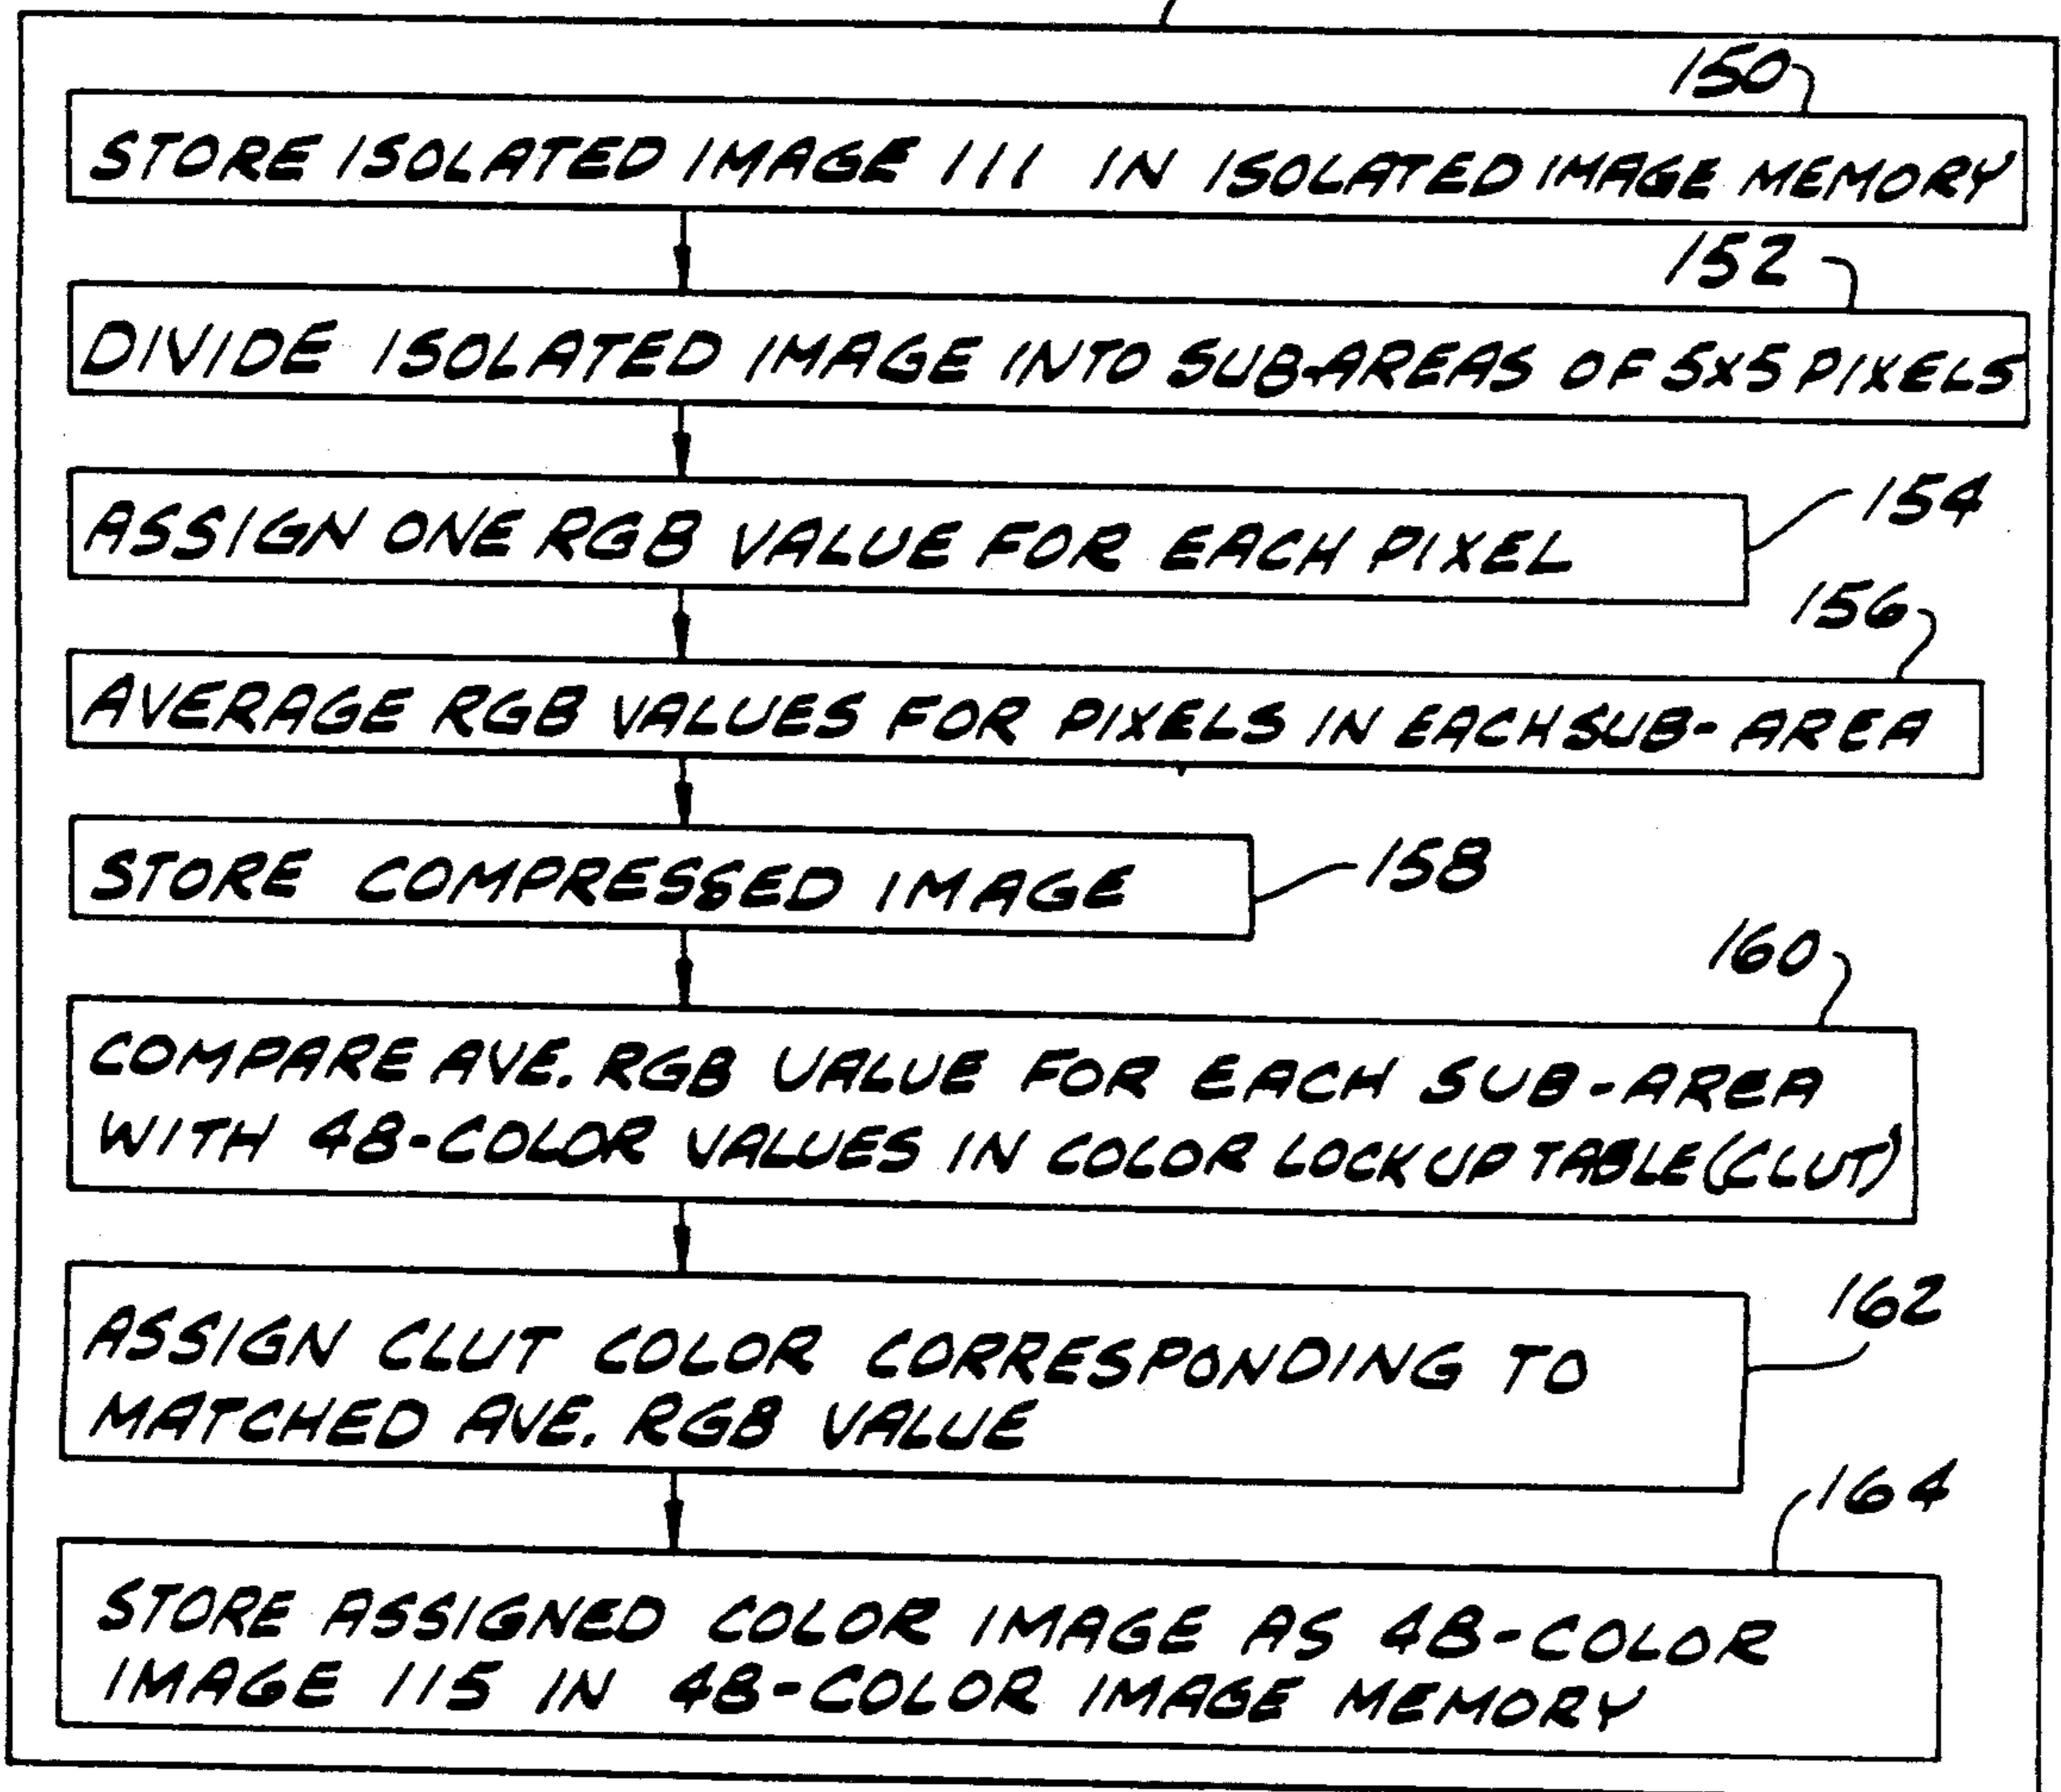 150
STORE ISOLATED IMAGE 111 IN ISOLATED IMAGE MEMORY
152
DIVIDE ISOLATED IMAGE INTO SUB-AREAS OF 5X5 PIXELS
154
ASSIGN ONE RGB VALUE FOR EACH PIXEL
156
AVERAGE RGB VALUES FOR PIXELS IN EACH SUB-AREA
STORE COMPRESSED IMAGE
158
160
COMPARE AVE. RGB VALUE FOR EACH SUB-AREA
WITH 48-COLOR VALUES IN COLOR LOCKUP TABLE (CLUT)
162
ASSIGN CLUT COLOR CORRESPONDING TO
MATCHED AVE. RGB VALUE
164
STORE ASSIGNED COLOR IMAGE AS 48-COLOR
IMAGE 115 IN 48-COLOR IMAGE MEMORY